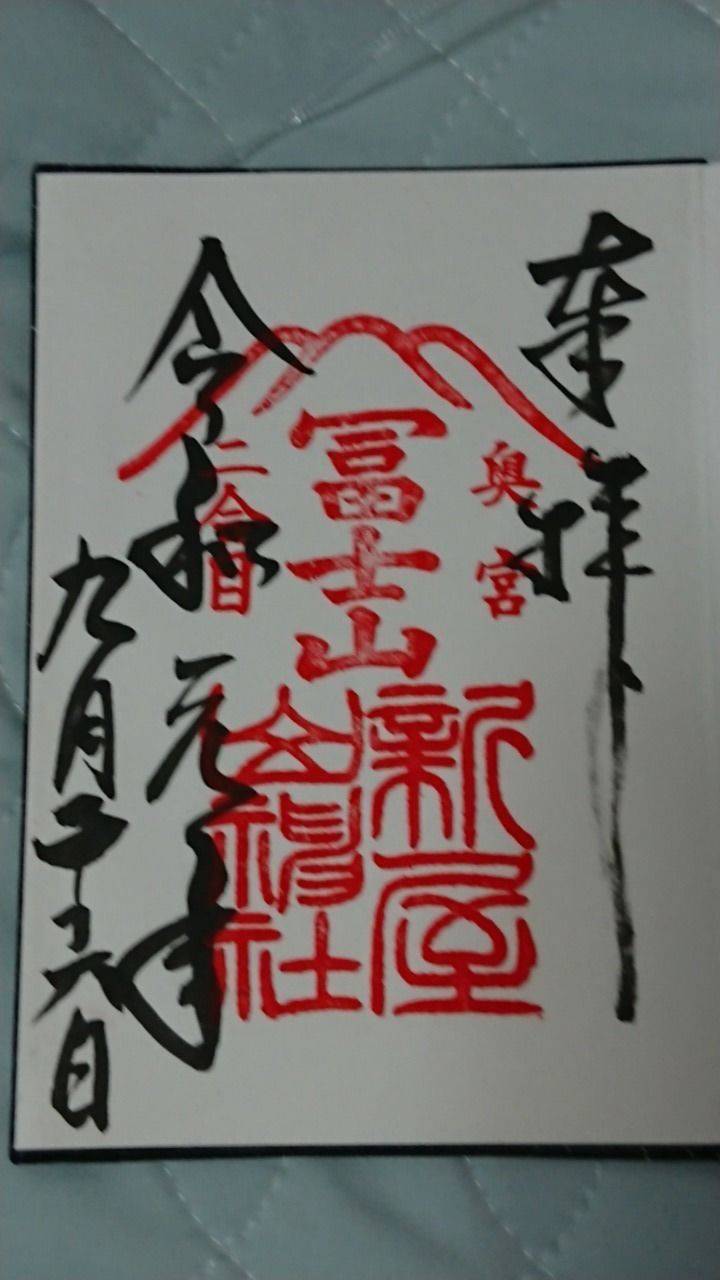 奉拝
奥宮
冨士山
二合目
新屋
山神社
令和元年
九月二十六日